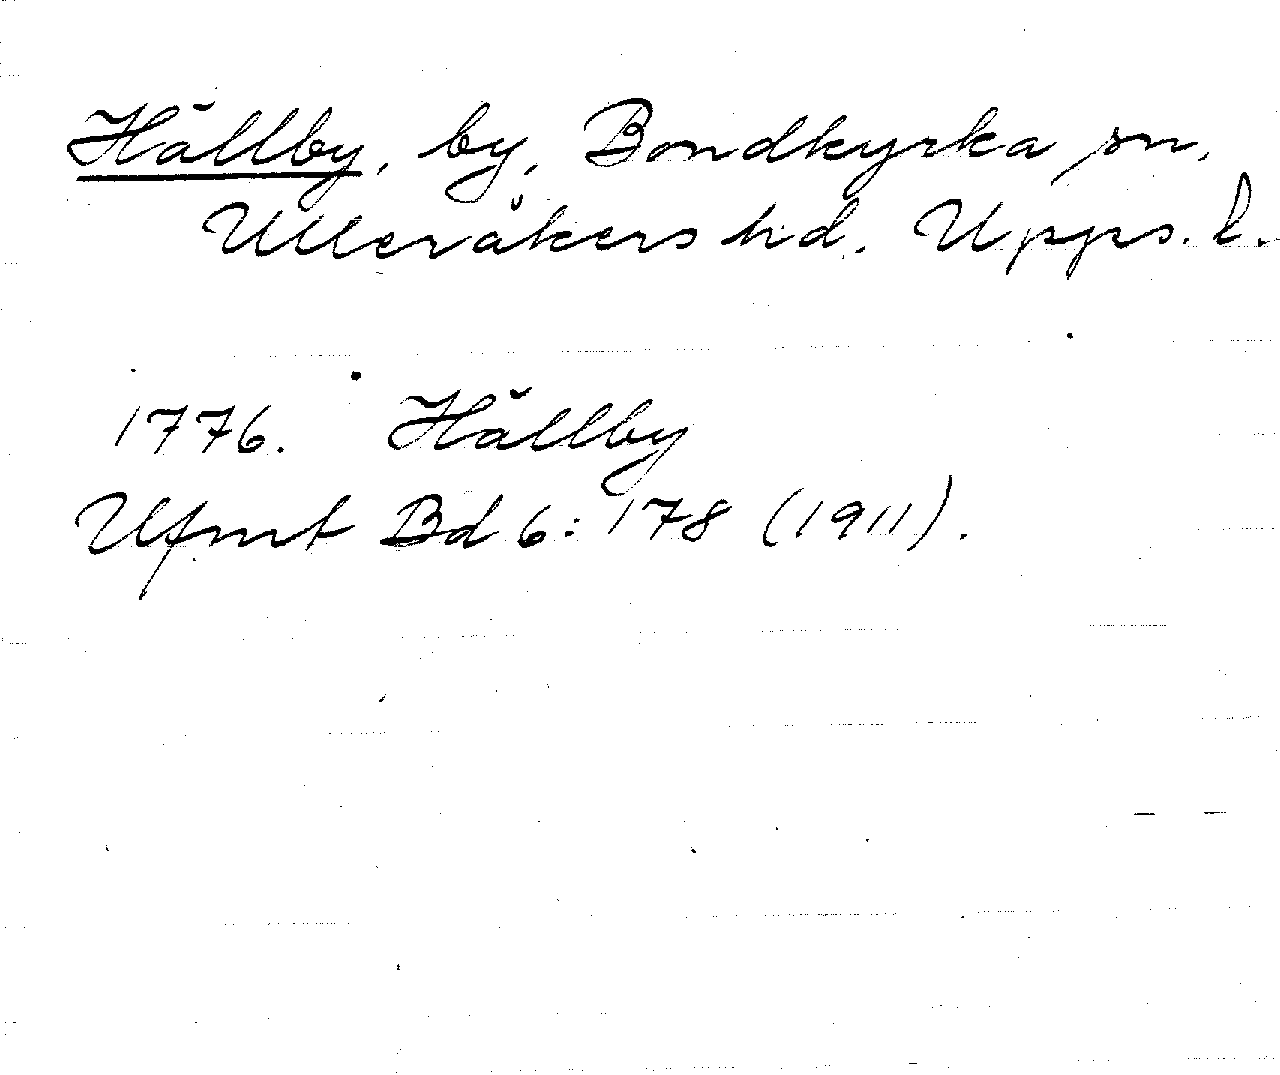 Hällby, by, Bondkyrka sn,
Ulleråkers hd. Upps. l.
1776. Hällby
Ufmt Bd 6: 178 (1911).